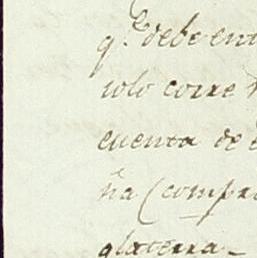 q.e debe ent
solo corre
cuenta de
ña (compr
glaterra_